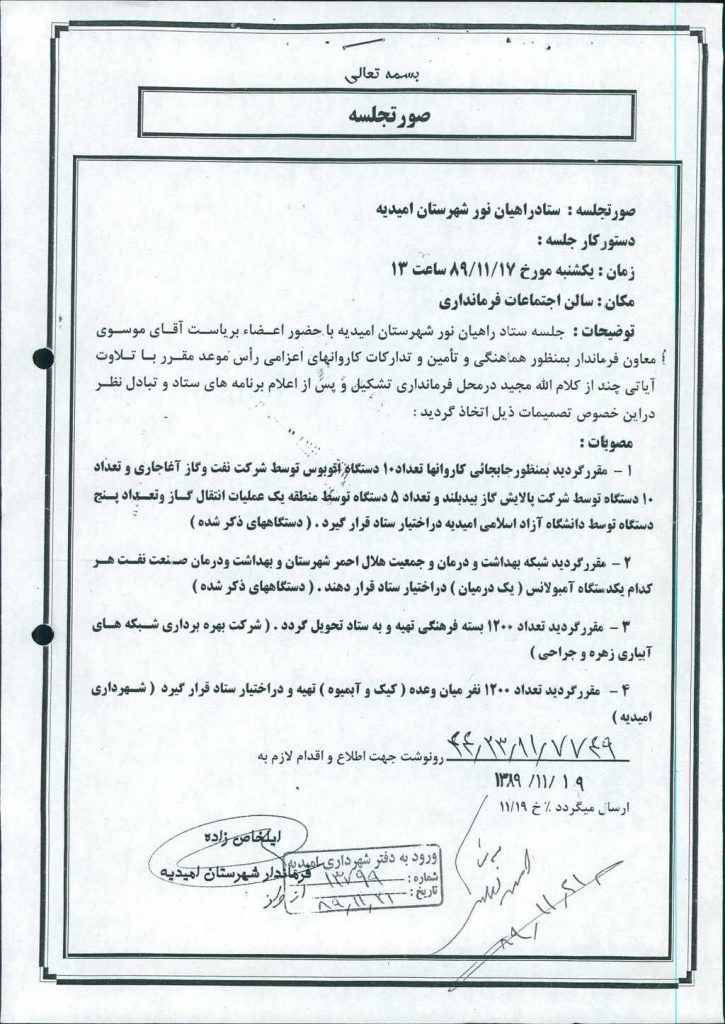 بسمه تعالی
صورتجلسه
صورتجلسه : ستادراهیان نور شهرستان امیدیه
دستورکار جلسه :
زمان : یکشنبه مورخ ۸۹/۱۱/۱۷ ساعت ۱۳
مکان : سالن اجتماعات فرمانداری
توضیحات : جلسه ستاد راهیان نور شهرستان امیدیه با حضور اعضاء بریاست آقای موسوی
معاون فرماندار بمنظور هماهنگی و تأمین و تدارکات کاروانهای اعزامی رأس موعد مقرر با تلاوت
آیاتی چند از کلام الله مجید درمحل فرمانداری تشکیل و پس از اعلام برنامه های ستاد و تبادل نظر
دراین خصوص تصمیمات ذیل اتخاذ گردید :
مصوبات :
۱ - مقررگردید بمنظورجابجائی کاروانها تعداد۱۰ دستگاه اتوبوس توسط شرکت نفت وگاز آغاجاری و تعداد
۱۰ دستگاه توسط شرکت پالایش گاز بیدبلند و تعداد ۵ دستگاه توسط منطقه یک عملیات انتقال گاز وتعداد پنج
دستگاه توسط دانشگاه آزاد اسلامی امیدیه دراختیار ستاد قرار گیرد . ( دستگاههای ذکر شده )
۲ - مقررگردید شبکه بهداشت و درمان و جمعیت هلال احمر شهرستان و بهداشت ودرمان صنعت نفت هر
کدام یکدستگاه آمبولانس ( یک درمیان ) دراختیار ستاد قرار دهند . ( دستگاههای ذکر شده )
۳ - مقررگردید تعداد ۱۲۰۰ بسته فرهنگی تهیه و به ستاد تحویل گردد . ( شرکت بهره برداری شبکه های
آبیاری زهره و جراحی )
۴ - مقررگردید تعداد ۱۲۰۰ نفر میان وعده ( کیک و آبمیوه ) تهیه و دراختیار ستاد قرار گیرد ( شهرداری
امیدیه )
۴۴/۲۳/۱۱/۷۷۴۹ رونوشت جهت اطلاع و اقدام لازم به
۱۳۸۹/۱۱/۱۹
ارسال میگردد ٪ خ ۱۱/۱۹
ایلخاص زاده
فرماندار شهرستان امیدیه
ورود به دفتر شهرداری امیدیه
شماره : ۱۳۷۹۹
تاریخ : ۸۹/۱۱/۲۱
۸۹/۱۱/۲۱